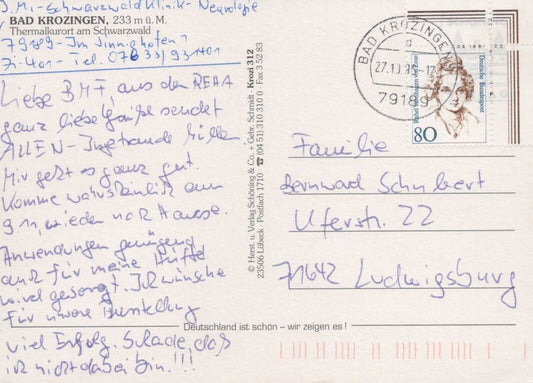 z.Mi-Schwarzwaldklinik-Neurologie
BAD KROZINGEN, 233 m ü. M.
Thermalkurort am Schwarzwald
79189-Im Sinnighofen 1
Zi.401- Tel. 07633/931401
Liebe BMF, aus der REHA
ganz liebe Grüße sendet
ALLEN-
Mir geht es ganz gut.
Komme wahrscheinlich am
9.11. wieder nach Hause.
Anwendungen genügend
auch für meine Hüfte
wird gesorgt. Ich wünsche
für unsere Ausstellung
viel Erfolg. Schade, daß
ich nicht dabei bin!!!
© Herst. u. Verlag Schöning & Co. + Gebr. Schmidt Krozi 312
23506 Lübeck · Postfach 1710 · ☎ (04 51) 310 31 0 · Fax 3 52 83
BAD KROZINGEN
d
79189
Deutsche Bundespost
80
Familie
Bernward Schubert
Uferstr. 22
71642 Ludwigsburg
Deutschland ist schön – wir zeigen es!